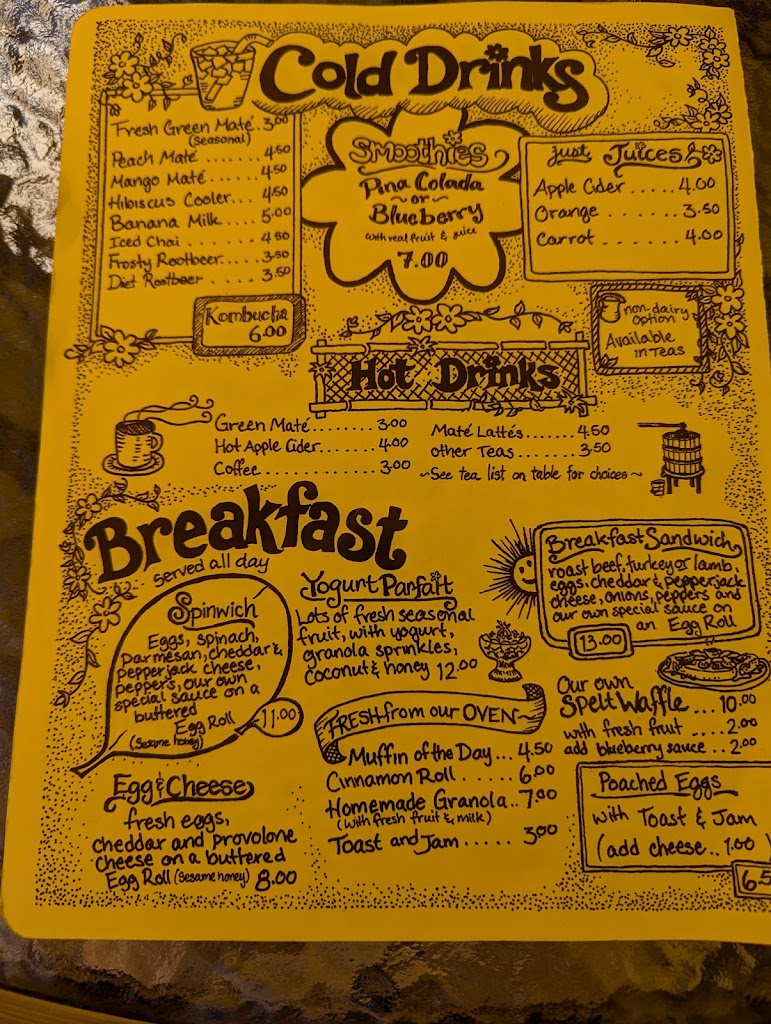 Cold Drinks
Fresh Green Maté. 3.00
(Seasonal)
Peach Maté ...... 4.50
Mango Maté ..... 4.50
Hibiscus Cooler... 4.50
Banana Milk.... 5.00
Iced Chai ...... 4.50
Frosty Rootbeer.... 3.50
Diet Rootbeer .... 3.50
Kombucha
6.00
Smoothies
Pina Colada
~or~
Blueberry
with real fruit & juice
7.00
Just Juices
Apple Cider ..... 4.00
Orange ....... 3.50
Carrot ....... 4.00
non-dairy
option
Available
in Teas
Hot Drinks
Green Maté........ 3.00
Hot Apple Cider....... 4.00
Coffee ............ 3.00
Maté Lattés....... 4.50
other Teas ....... 3.50
~See tea list on table for choices~
Breakfast
served all day
Spinwich
Eggs, spinach,
parmesan, cheddar &
pepperjack cheese,
peppers, our own
special sauce on a
buttered
Egg Roll
(Sesame honey)
11.00
Egg & Cheese
fresh eggs,
cheddar and provolone
cheese on a buttered
Egg Roll (Sesame honey) 8.00
Yogurt Parfait
Lots of fresh seasonal
fruit, with yogurt,
granola sprinkles,
coconut & honey 12.00
FRESH from our OVEN~
Muffin of the Day... 4.50
Cinnamon Roll ...... 6.00
Homemade Granola.. 7.00
(with fresh fruit & milk)
Toast and Jam ..... 3.00
Breakfast Sandwich
roast beef, turkey or lamb,
eggs, cheddar & pepperjack
cheese, onions, peppers and
our own special sauce on
an Egg Roll
13.00
Our own
Spelt Waffle ... 10.00
with fresh fruit .... 2.00
add blueberry sauce .. 2.00
Poached Eggs
with Toast & Jam
(add cheese.. 1.00)
6.5